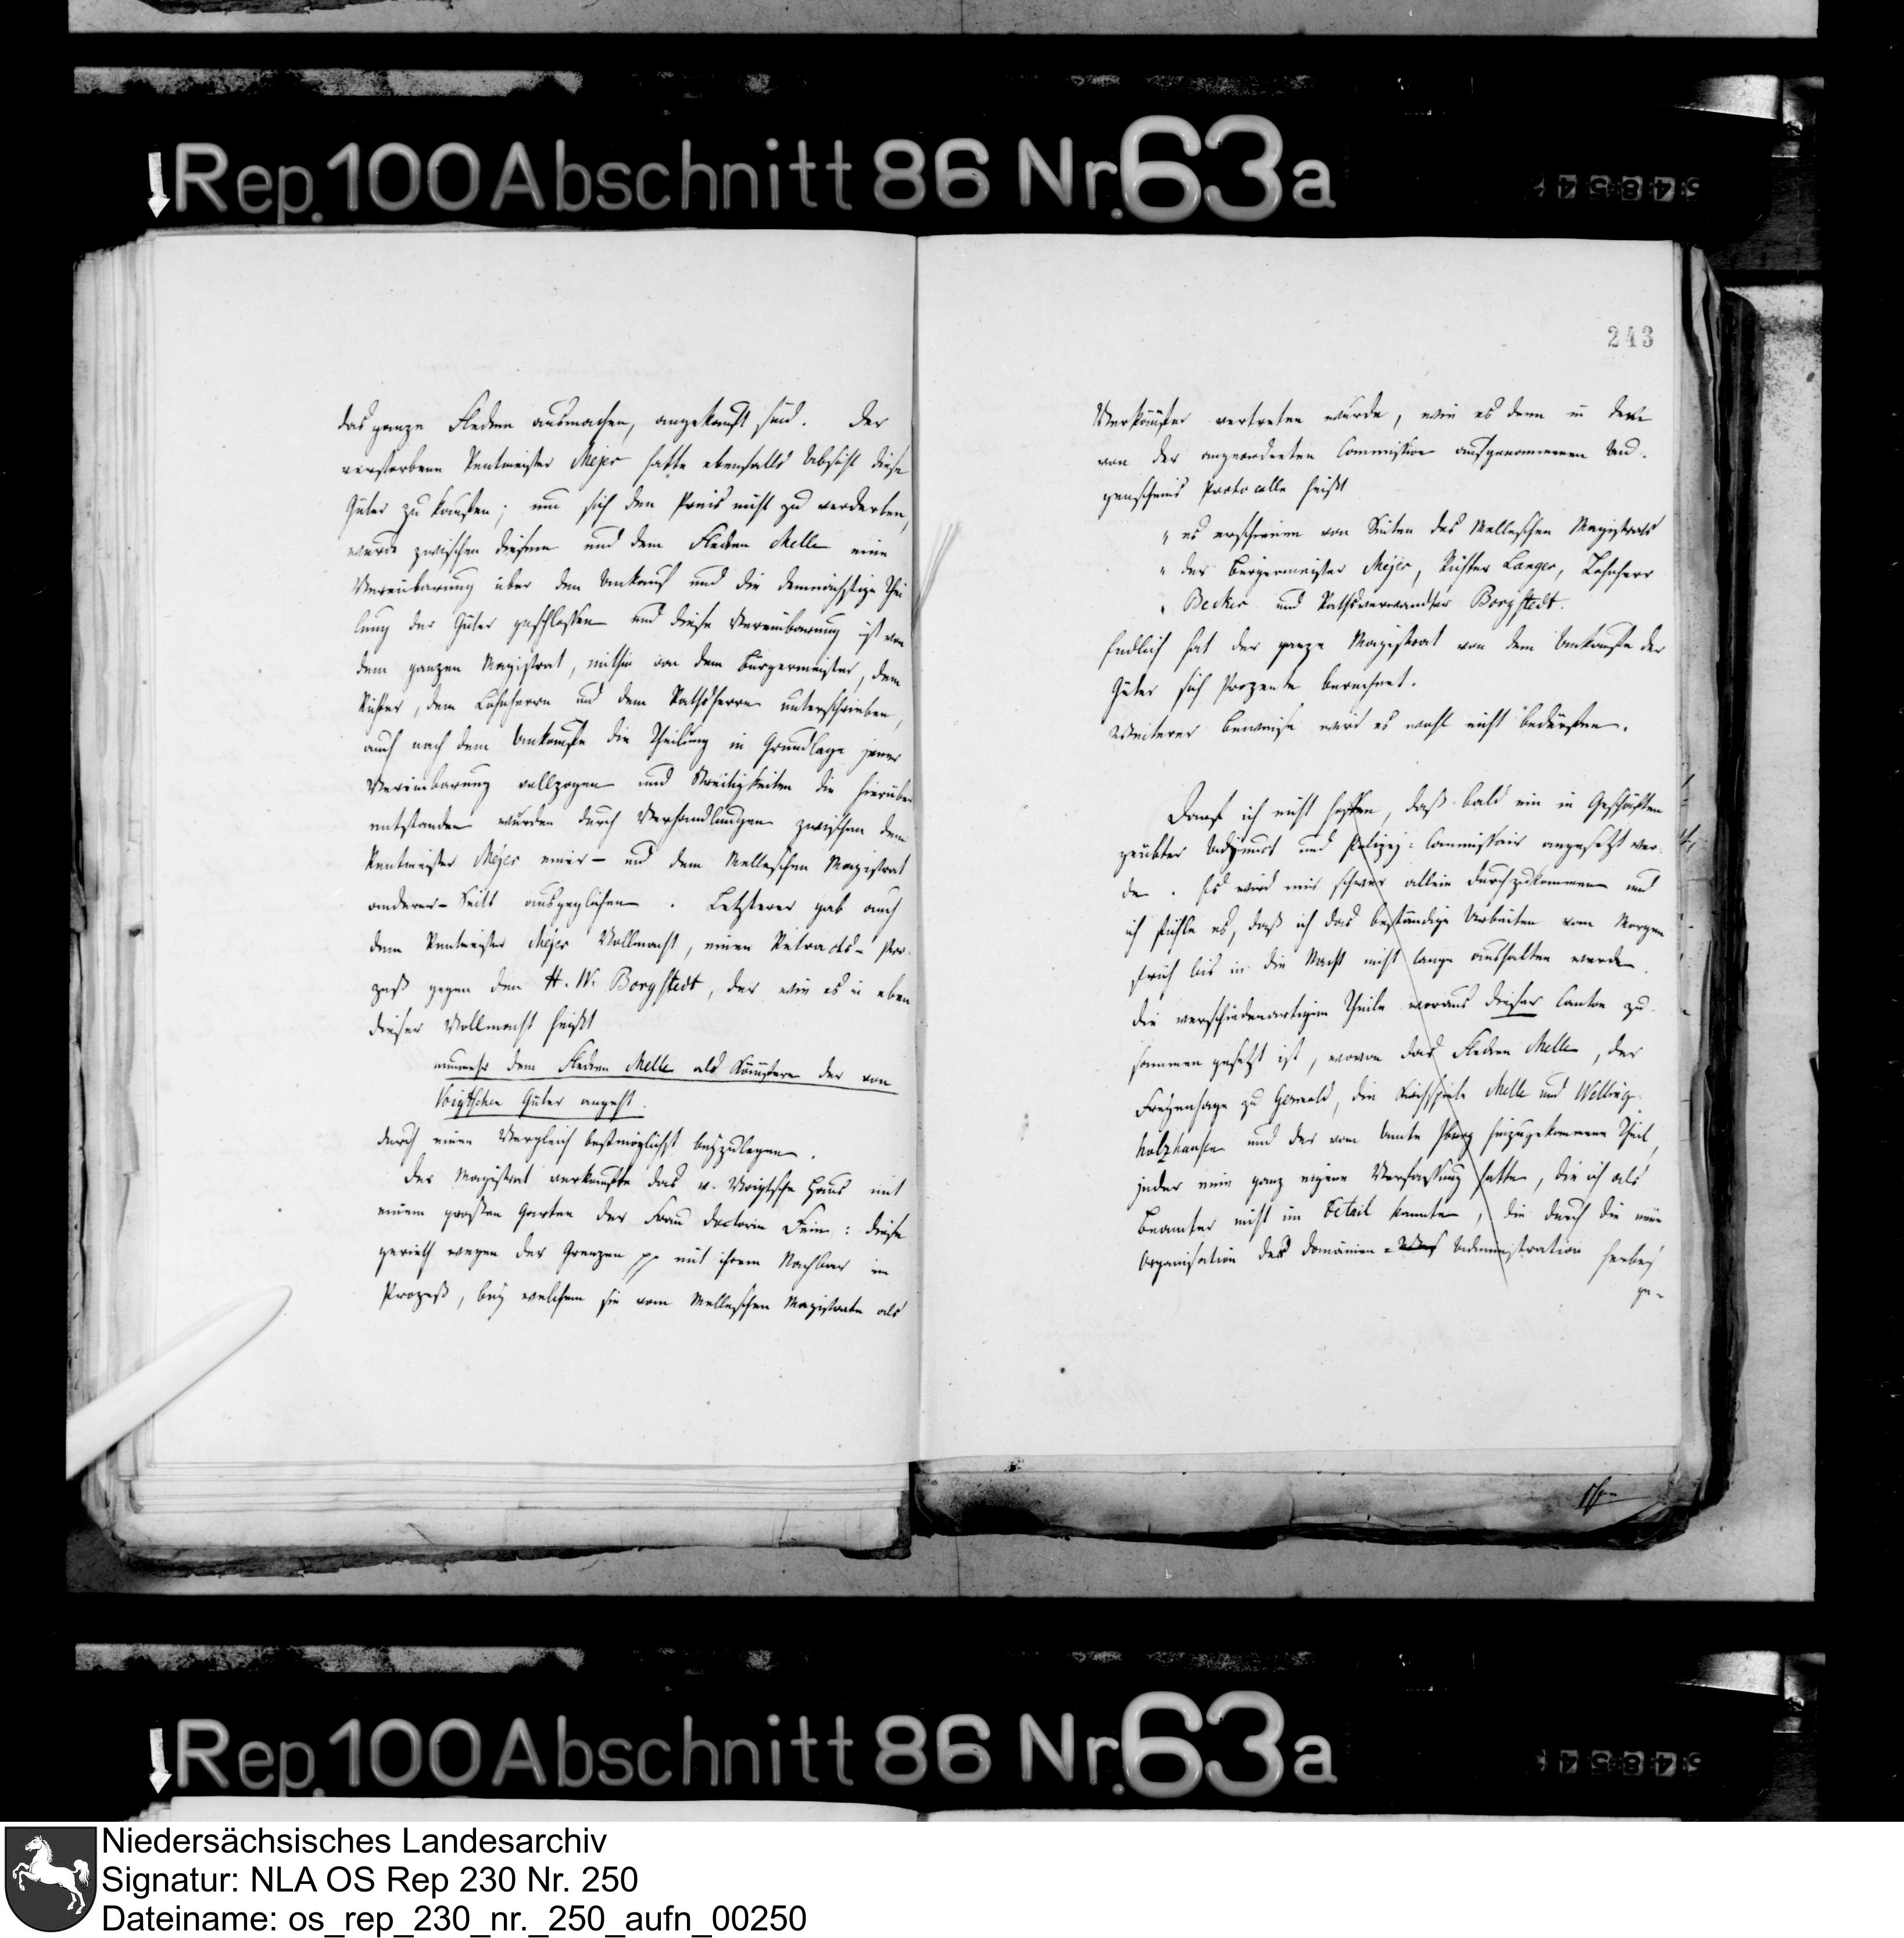 Rep. 100 Abschnitt 86 Nr. 63a
das ganze Flecken ausmachen, angekauft sind. Der
verstorbene Rentmeister Mejer hatte ebenfalls Absicht diese
Güter zu kaufen; um sich den Preis nicht zu verderben,
wurde zwischen diesem und dem Flecken Melle eine
Vereinbarung über den Ankauf und die demnächstige Thei
lung der Güter geschlossen und diese Vereinbarung ist von
dem ganzen Magistrat, mithin von dem Bürgermeister, dem
Richter, dem Lohnherrn und dem Rathsherrn unterschrieben,
auch nach dem Ankaufe die Theilung in Grundlage jener
Vereinbarung vollzogen und Streitigkeiten die hierüber
entstanden wurden durch Verhandlungen zwischen dem
Rentmeister Mejer einer- und dem Melleschen Magistrat
anderer-Seits ausgeglichen. Letzterer gab auch
dem Rentmeister Mejer Vollmacht, einen Retracts-Pro-
zeß gegen den H. W. Borgstedt, der wie es in eben
dieser Vollmacht heißt
nunmehr dem Flecken Melle als Käufere der von
Voigtschen Güter angeht.
durch einen Vergleich bestmöglichst beyzulegen.
Der Magistrat verkaufte das v. Voigtsche Haus mit
einem großen Garten der Frau Doctorin Fein: diese
gerieth wegen der Grenzen pp mit ihrem Nachbar in
Prozeß, bey welchem sie vom Melleschen Magistrate als
243
Verkäufer vertreten wurde, wie es denn in dem
von der angeordneten Commission aufgenommenen Au-
genscheins Protocolle heißt
" es erschienen von Seiten des Melleschen Magistrats
" der Bürgermeister Mejer, Richter Langer, Lohnherr
" Becker und Rathsverwandter Borgstedt.
Endlich hat der ganze Magistrat von dem Ankaufe der
Güter sich Prozente berechnet.
Weiterer Beweise wird es wohl nicht bedürfen.
Darf ich nicht hoffen, daß bald ein in Geschäften
geübter Adjunct und Polizej-Commissair angesetzt wer-
de. Es wird mir schwer allein durchzukommen und
ich fühle es, daß ich das beständige Arbeiten vom Morgen
früh bis in die Nacht nicht lange aushalten werde.
Die verschiedenartigen Theile woraus dieser Canton zu-
sammen gesetzt ist, wovon das Flecken Melle, der
zu Gesmold, die Kirchspiele Melle und Welling-
holzhausen und der vom Amte Iburg hinzugekommene Theil,
jeder eine ganz eigene Verfassung hatte, die ich als
Beamter nicht im Detail kannte, die durch die neue
Organisation der Domänen-Administration herbey
ge-
Rep. 100 Abschnitt 86 Nr. 63a
Niedersächsisches Landesarchiv
Signatur: NLA OS Rep 230 Nr. 250
Dateiname: os_rep_230_nr._250_aufn_00250